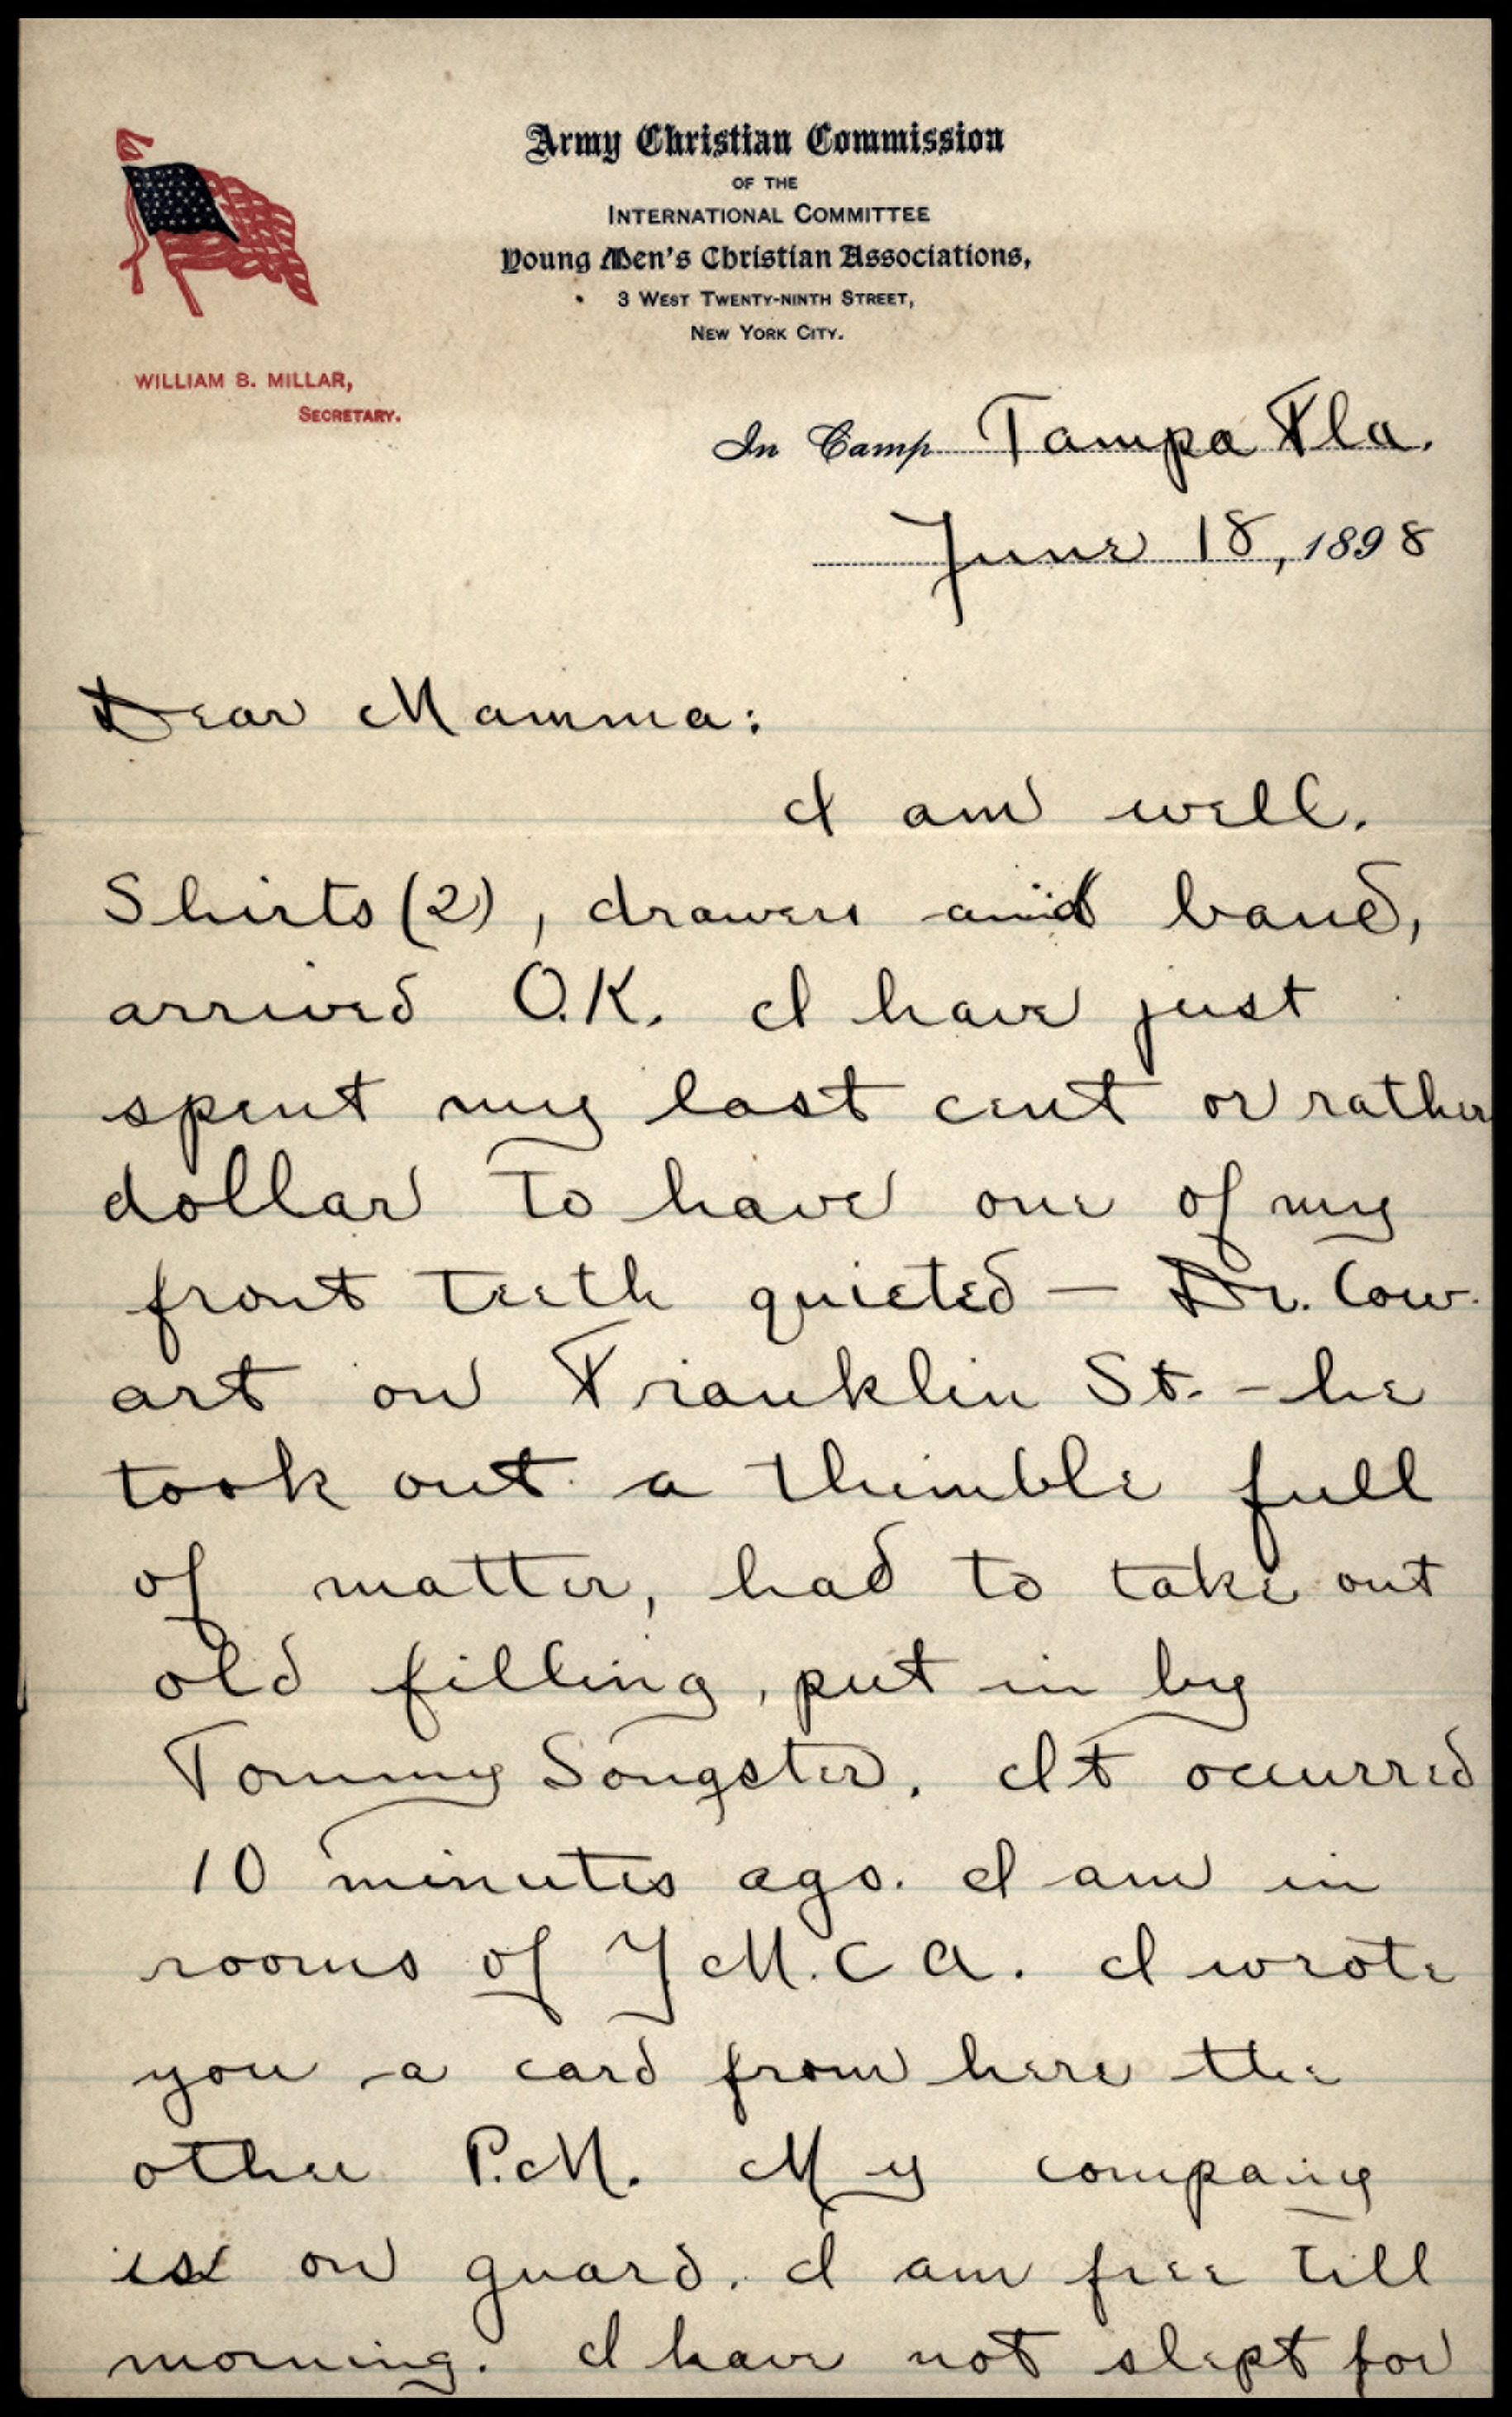 Army Christian Commission
OF THE
INTERNATIONAL COMMITTEE
Young Men's Christian Associations,
3 WEST TWENTY-NINTH STREET,
NEW YORK CITY.
WILLIAM B. MILLAR,
SECRETARY.
In Camp Tampa Fla.
June 18, 1898
Dear Mamma:
I am well.
Shirts (2), drawers and band,
arrived O.K. I have just
spent my last cent or rather
dollar to have one of my
front teeth quieted — Dr. Cow-
art on Franklin St. - he
took out a thimble full
of matter, had to take out
old filling, put in by
Tommy Songster. It occurred
10 minutes ago. I am in
rooms of Y M. C A. I wrote
you a card from here the
other P.M. My company
is on guard. I am free till
morning. I have not slept for